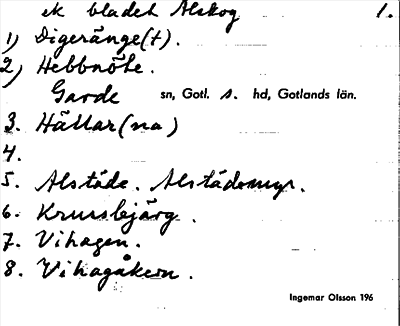 ek bladet Alskog 1.
1) Digeränge(t).
2) Hebbnöte.
Garde sn, Gotl. s. hd, Gotlands län.
3. Hällar(na)
4.
5. Alstäde. Alstädemyr.
6. Krussbjärg.
7. Vihagen.
8. Vihagåkern.
Ingemar Olsson 196